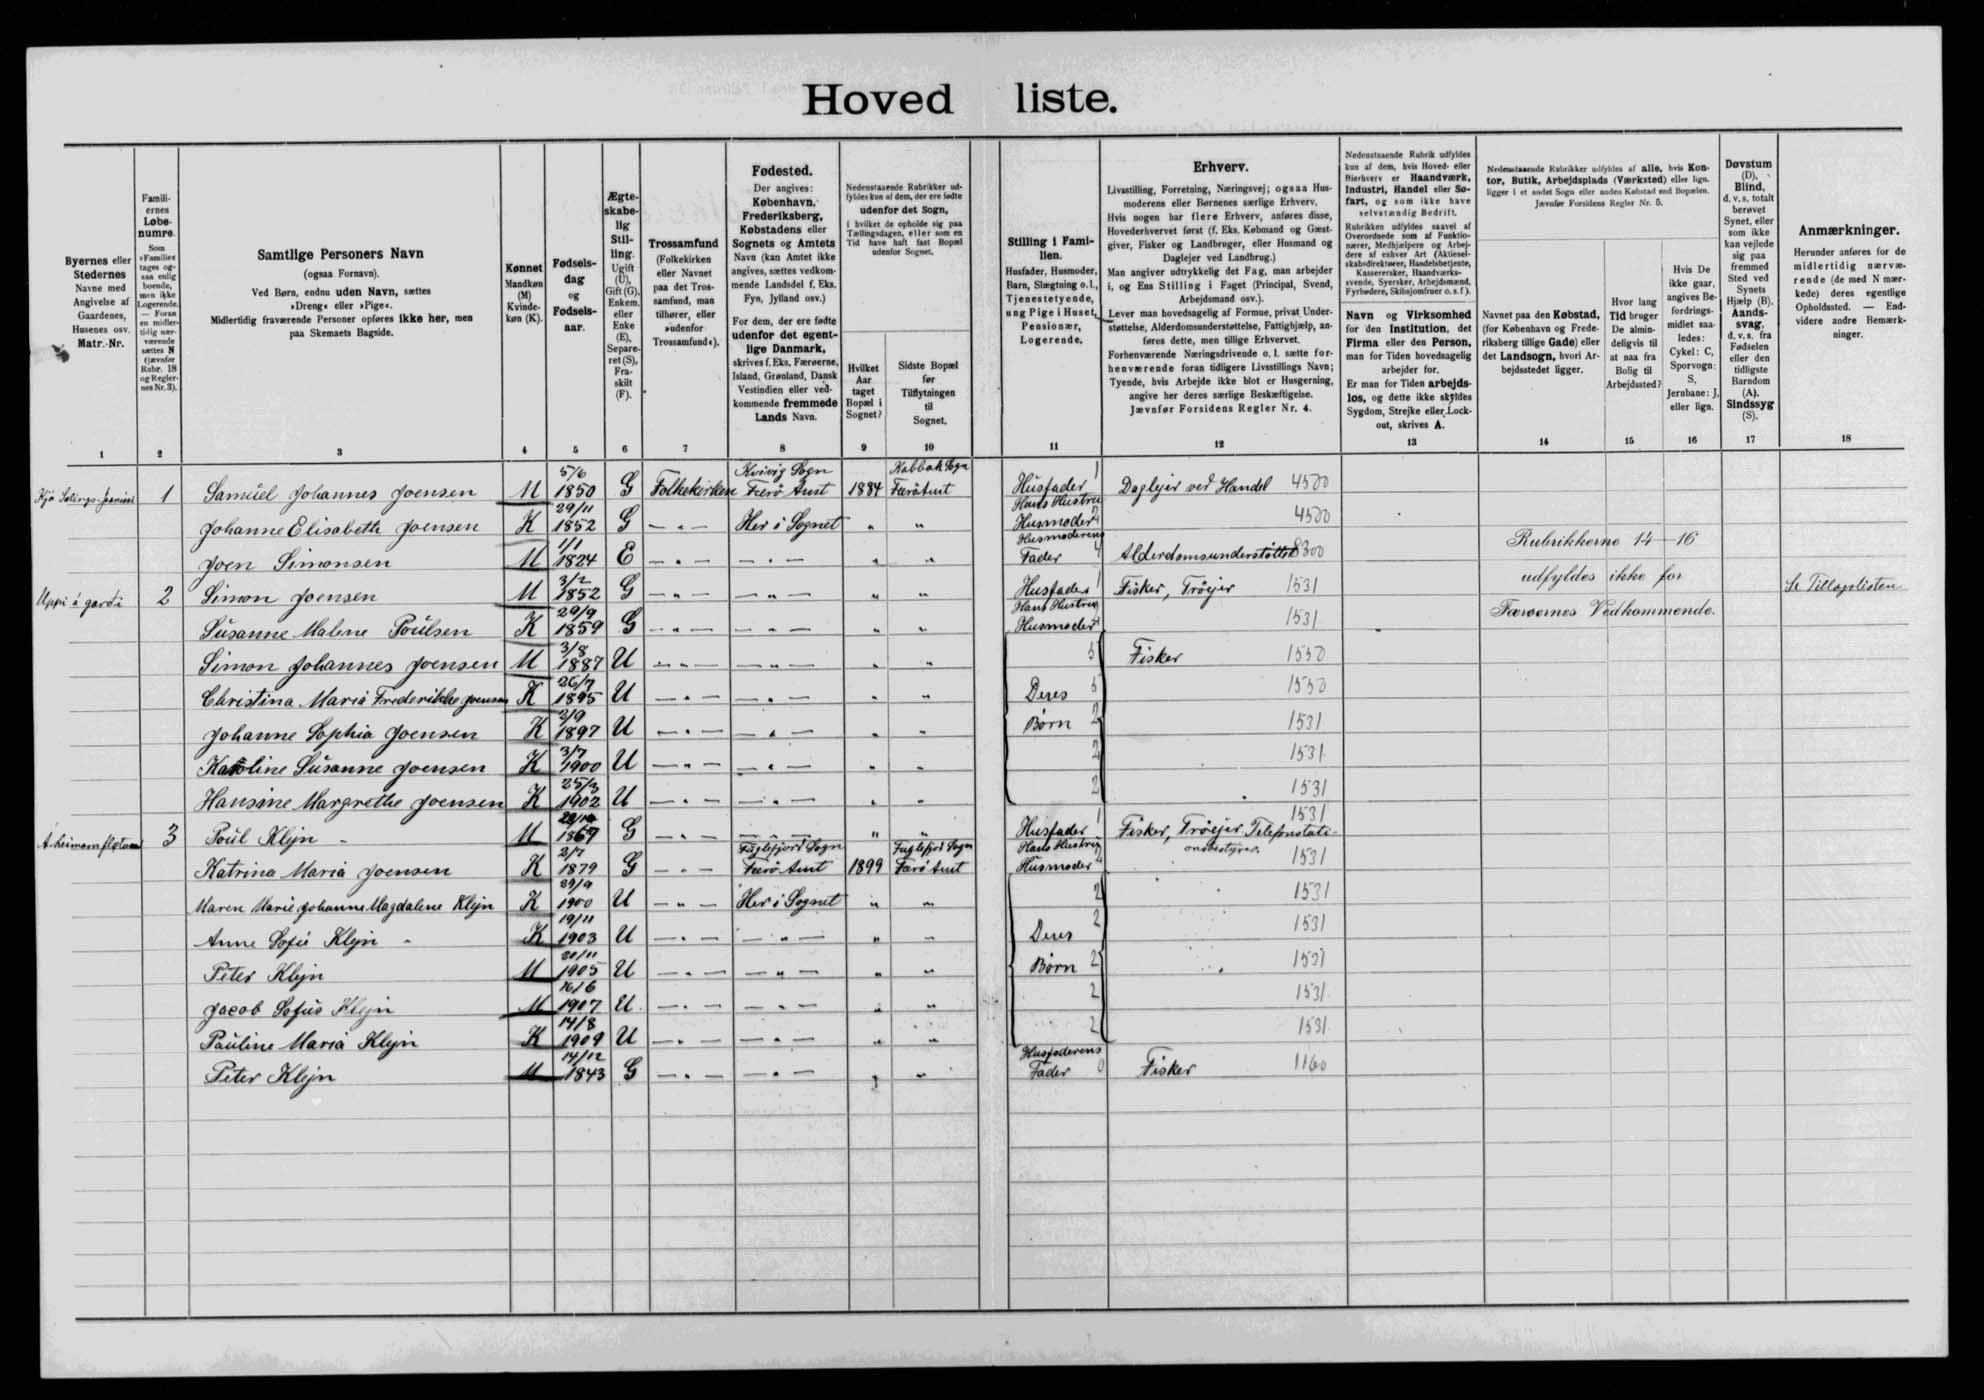 Hoved liste.
Byernes eller
Stedernes
Navne med
Angivelse af
Gaardenes,
Husenes osv.
Matr.-Nr.
Famili-
ernes
Løbe-
numre.
Som
»Familie«
tages og-
saa enlig
boende,
men ikke
Logerende.
— Foran
en midler-
tidig nær-
værende
sættes N
(jævnfør
Rubr. 18
og Regler-
nes Nr. 3).
Samtlige Personers Navn
(ogsaa Fornavn).
Ved Børn, endnu uden Navn, sættes
»Dreng« eller »Pige«.
Midlertidig fraværende Personer opføres ikke her, men
paa Skemaets Bagside.
Kønnet
Mandkøn
(M)
Kvinde-
køn (K).
Fødsels-
dag
og
Fødsels-
aar.
Ægte-
skabe-
lig
Stil-
ling.
Ugift
(U),
Gift (G),
Enkem.
eller
Enke
(E),
Separe-
ret (S),
Fra-
skilt
(F).
Trossamfund
(Folkekirken
eller Navnet
paa det Tros-
samfund, man
tilhører, eller
»udenfor
Trossamfund«).
Fødested.
Der angives:
København,
Frederiksberg,
Købstadens eller
Sognets og Amtets
Navn (kan Amtet ikke
angives, sættes vedkom-
mende Landsdel f. Eks.
Fyn, Jylland osv.)
For dem, der ere fødte
udenfor det egent-
lige Danmark,
skrives f. Eks. Færøerne,
Island, Grønland, Dansk
Vestindien eller ved-
kommende fremmede
Lands Navn.
Nedenstaaende Rubrikker ud-
fyldes kun af dem, der ere fødte
udenfor det Sogn,
i hvilket de opholde sig paa
Tællingsdagen, eller som en
Tid have haft fast Bopæl
udenfor Sognet.
Hvilket
Aar
taget
Bopæl i
Sognet?
Sidste Bopæl
før
Tilflytningen
til
Sognet.
Stilling i Fami-
lien.
Husfader, Husmoder,
Barn, Slægtning o. l.,
Tjenestetyende,
ung Pige i Huset,
Pensionær,
Logerende.
Erhverv.
Livsstilling, Forretning, Næringsvej; ogsaa Hus-
moderens eller Børnenes særlige Erhverv.
Hvis nogen har flere Erhverv, anføres disse,
Hovederhvervet først (f. Eks. Købmand og Gæst-
giver, Fisker og Landbruger, eller Husmand og
Daglejer ved Landbrug.)
Man angiver udtrykkelig det Fag, man arbejder
i, og Ens Stilling i Faget (Principal, Svend,
Arbejdsmand osv.).
Lever man hovedsagelig af Formue, privat Under-
støttelse, Alderdomsunderstøttelse, Fattighjælp, an-
føres dette, men tillige Erhvervet.
Forhenværende Næringsdrivende o. l. sætte for-
henværende foran tidligere Livsstillings Navn;
Tyende, hvis Arbejde ikke blot er Husgerning,
angive her deres særlige Beskæftigelse.
Jævnfør Forsidens Regler Nr. 4.
Nedenstaaende Rubrik udfyldes
kun af dem, hvis Hoved- eller
Bierhverv er Haandværk,
Industri, Handel eller Sø-
fart, og som ikke have
selvstændig Bedrift.
Rubrikken udfyldes saavel af
Overordnede som af Funktio-
nærer, Medhjælpere og Arbej-
dere af enhver Art (Aktiesel-
skabsdirektører, Handelsbetjente,
Kassererske, Haandværks-
svende, Syersker, Arbejdsmænd,
Fyrbødere, Skibsjomfruer o. s. f.).
Navn og Virksomhed
for den Institution, det
Firma eller den Person,
man for Tiden hovedsagelig
arbejder for.
Er man for Tiden arbejds-
løs, og dette ikke skyldes
Sygdom, Strejke eller Lock-
out, skrives A.
Nedenstaaende Rubrikker udfyldes af alle, hvis Kon-
tor, Butik, Arbejdsplads (Værksted) eller lign.
ligger i et andet Sogn eller anden Købstad end Bopælen.
Jævnfør Forsidens Regler Nr. 5.
Navnet paa den Købstad,
(for København og Frede-
riksberg tillige Gade) eller
det Landsogn, hvori Ar-
bejdsstedet ligger.
Hvor lang
Tid bruger
De almin-
deligvis til
at naa fra
Bolig til
Arbejdssted?
Hvis De
ikke gaar,
angives Be-
fordrings-
midlet saa-
ledes:
Cykel: C,
Sporvogn:
S,
Jernbane: J,
eller lign.
Døvstum
(D),
Blind,
d. v. s. totalt
berøvet
Synet, eller
som ikke
kan vejlede
sig paa
fremmed
Sted ved
Synets
Hjælp (B).
Aands-
svag,
d. v. s. fra
Fødselen
eller den
tidligste
Barndom
(A).
Sindssyg
(S).
Anmærkninger.
Herunder anføres for de
midlertidig nærvæ-
rende (de med N mær-
kede) deres egentlige
Opholdssted. — End-
videre andre Bemærk-
ninger.
1 2 3 4 5 6 7 8 9 10 11 12 13 14 15 16 17 18
1 Samúel Johannes Joensen M 5/6 1850 G Folkekirken Kvivig Sogn Færø Amt 1884 Færø Amt Husfader 1 Daglejer ved Handel 4500
Johanne Elisabeth Joensen K 29/11 1852 G — „ — Her i Sognet „ „ Hans Hustru Husmoder 4500
Joen Simonsen M 1/1 1824 E — „ — — „ — „ „ Husmoderens Fader 4 Alderdomsunderstøttet Rubrikkerne 14—16
Uppi á garði 2 Simon Joensen M 3/2 1852 G — „ — — „ — „ „ Husfader 1 Fisker, Trøejer 1531 udfyldes ikke for Se Tillægslisten
Susanne Malene Poúlsen K 29/9 1859 G — „ — — „ — „ „ Hans Hustru Husmoder 1531 Færøernes Vedkommende.
Simon Johannes Joensen M 3/8 1887 U — „ — — „ — „ „ 5 Fisker 1550
Christina Maria Frederikke Joensen K 26/7 1895 U — „ — — „ — „ „ Deres 5 1550
Johanne Sophia Joensen K 2/9 1897 U — „ — — „ — „ „ Børn 2 1531
Karoline Súsanne Joensen K 3/7 1900 U — „ — — „ — „ „ 2 1531
Hansine Margrethe Joensen K 25/3 1902 U — „ — — „ — „ „ 2 1531
3 Poúl Klejn M G — „ — — „ — „ „ Husfader 1 Fisker, Trøejer. Telefonstati-onsbestyrer. 1531
Katrina Maria Joensen K 2/7 1879 G — „ — Fuglefjord Sogn Færø Amt 1899 Fuglefjord Sogn Færø Amt Hans Hustru Husmoder 1531
Maren Marie Johanne Magdalene Klejn K 29/9 1900 U — „ — Her i Sognet „ „ 2 1531
Anne Sofie Klejn K 19/11 1903 U — „ — — „ — „ „ Deres 2 1531
Peter Klejn M 20/11 1905 U — „ — — „ — „ „ Børn 2 1531
Jacob Sofus Klejn M 16/6 1907 U — „ — — „ — „ „ 2 1531
Pauline Maria Klejn K 14/8 1909 U — „ — — „ — „ „ 2 1531
Peter Klejn M 14/12 1843 G — „ — — „ — „ „ Husfaderens Fader 0 Fisker 1160